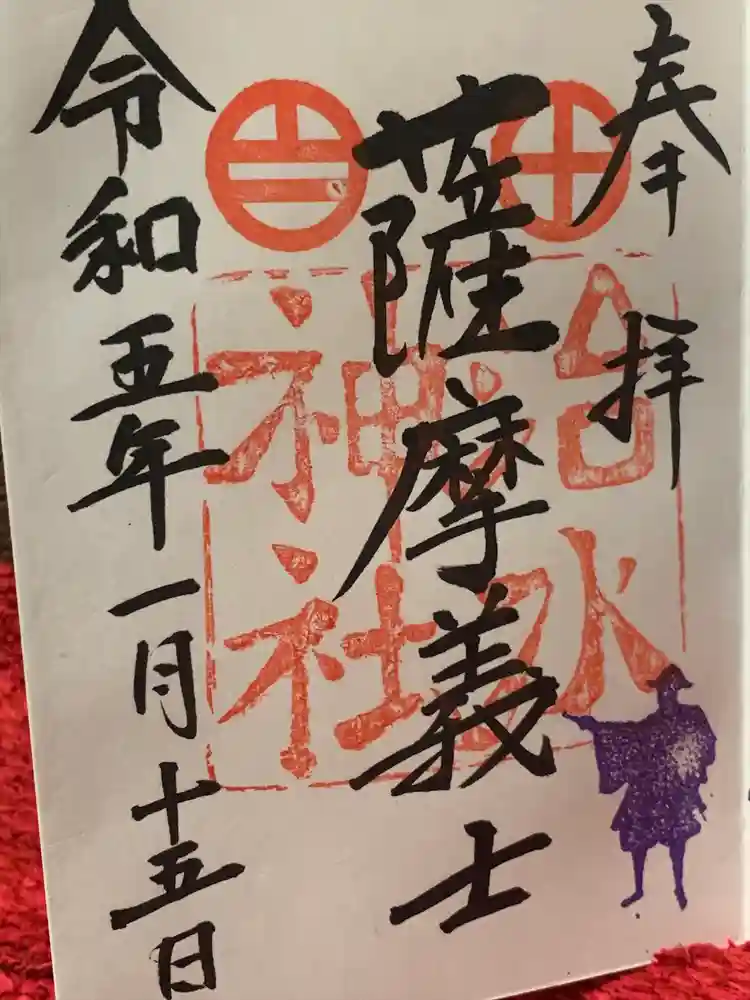 奉拝
治水
神社
薩摩義士
令和五年一月十五日